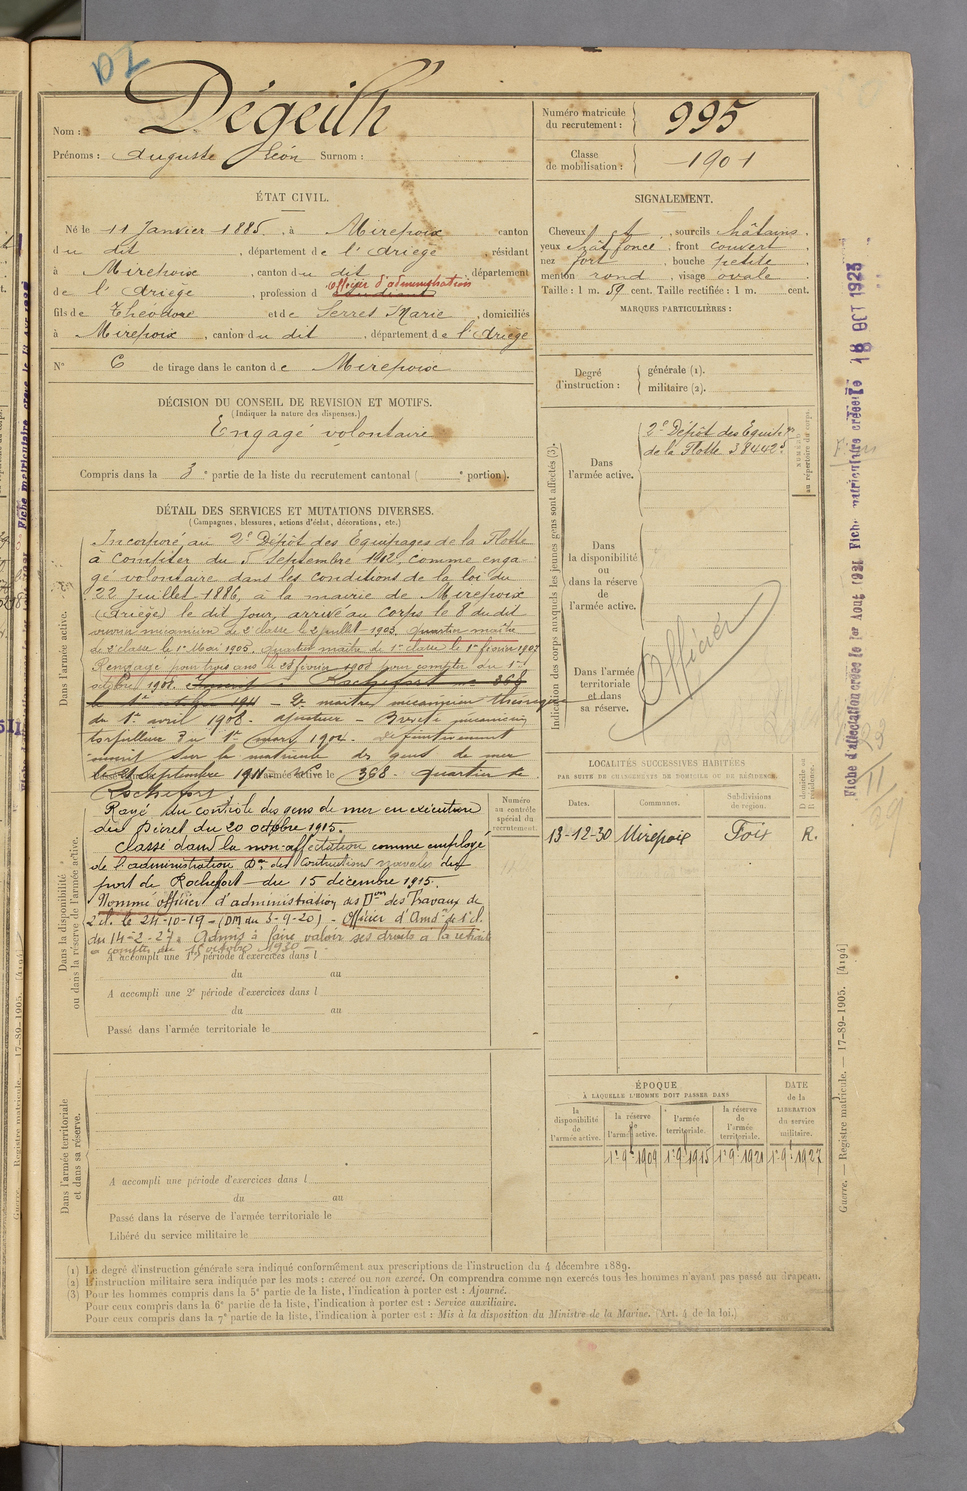 DI
Nom : Dégeilh
Prénoms : Auguste Léon Surnom :
Numéro matricule du recrutement : 995
Classe de mobilisation : 1901
ÉTAT CIVIL.
Né le 11 Janvier 1885, à Mirepoix canton
du dit, département de l'Ariège, résidant
à Mirepoix, canton du dit, département
de l'Ariège, profession d Officier d'administration
fils de Théodore et de Serres Marie, domiciliés
à Mirepoix, canton du dit, département de l'Ariège
N° 6 de tirage dans le canton de Mirepoix
SIGNALEMENT.
Cheveux et, sourcils châtains.
yeux chât foncé, front couvert.
nez fort, bouche petite.
menton rond, visage ovale.
Taille : 1 m. 59 cent. Taille rectifiée : 1 m. cent.
MARQUES PARTICULIÈRES :
Degré d'instruction : générale (1).
militaire (2).
DÉCISION DU CONSEIL DE REVISION ET MOTIFS.
(Indiquer la nature des dispenses.)
Engagé volontaire
Compris dans la 3e partie de la liste du recrutement cantonal ( e portion).
DÉTAIL DES SERVICES ET MUTATIONS DIVERSES.
(Campagnes, blessures, actions d'éclat, décorations, etc.)
Dans l'armée active.
Incorporé au 2e Dépôt des Equipages de la Flotte
à compter du 5 Septembre 1902, comme enga-
gé volontaire dans les conditions de la loi du
22 Juillet 1886, à la mairie de Mirepoix
(Ariège) le dit jour, arrivé au Corps le 8 du dit
ouvrier mécanicien de 2e classe le 2 juillet 1903. quartier-maître
de 2e classe le 1er Mai 1905. quartier maître de 1re classe le 1er février 1907
Rengagé pour trois ans le 28 février 1908 pour compter du 1er
octobre 1908. Inscrit à Rochefort n° 368
le 1er octobre 1911 - 2e maître mécanicien théorique
du 1er avril 1908. ajusteur - Breveté mécanicien
torpilleur du 1er mars 1904.
inscrit sur la matricule des gens de mer
le septembre 1911 le 368. quartier de
Rochefort
Dans la disponibilité ou dans la réserve de l'armée active.
Rayé du contrôle des gens de mer en exécution
du Décret du 20 octobre 1915.
Classé dans la non-affectation comme employé
de l'administration Don des Constructions navales du
port de Rochefort - du 15 décembre 1915.
Nommé officier d'administration des Dons des Travaux de
2e cl. le 24-10-19 - (DM du 3-9-20) - Officier d'Amdon de 1e cl.
du 14-2-27. Admis à faire valoir ses droits à la retraite
à compter du 15 octobre 1930
A accompli une 1re période d'exercices dans l
du au
A accompli une 2e période d'exercices dans l
du au
Passé dans l'armée territoriale le
Numéro au contrôle spécial du recrutement.
Dans l'armée territoriale et dans sa réserve.
A accompli une période d'exercices dans l
du au
Passé dans la réserve de l'armée territoriale le
Libéré du service militaire le
Indication des corps auxquels les jeunes gens sont affectés (3).
Dans l'armée active.
2e Dépôt des Equipages
de la Flotte 38442
NUMÉROS au répertoire du corps.
Dans la disponibilité ou dans la réserve de l'armée active.
Dans l'armée territoriale et dans sa réserve.
Officier
LOCALITÉS SUCCESSIVES HABITÉES
PAR SUITE DE CHANGEMENTS DE DOMICILE OU DE RÉSIDENCE.
Dates. Communes. Subdivisions de région. D domicile ou R résidence.
13-12-30 Mirepoix Foix R.
ÉPOQUE
À LAQUELLE L'HOMME DOIT PASSER DANS
la disponibilité de l'armée active.
la réserve de l'armée active.
l'armée territoriale.
la réserve de l'armée territoriale.
DATE de la LIBÉRATION du service militaire.
1er 9bre 1909 1er 9bre 1915 1er 9bre 1921 1er 9bre 1927
(1) Le degré d'instruction générale sera indiqué conformément aux prescriptions de l'instruction du 4 décembre 1889.
(2) L'instruction militaire sera indiquée par les mots : exercé ou non exercé. On comprendra comme non exercés tous les hommes n'ayant pas passé au drapeau.
(3) Pour les hommes compris dans la 5e partie de la liste, l'indication à porter est : Ajourné.
Pour ceux compris dans la 6e partie de la liste, l'indication à porter est : Service auxiliaire.
Pour ceux compris dans la 7e partie de la liste, l'indication à porter est : Mis à la disposition du Ministre de la Marine. (Art. 4 de la loi.)
Fiche d'affectation créée le 1er Aout 1921 Fiche matriculaire créée le 18 OCT 1923
Guerre. — Registre matricule. — 17-89-1905. [4194]